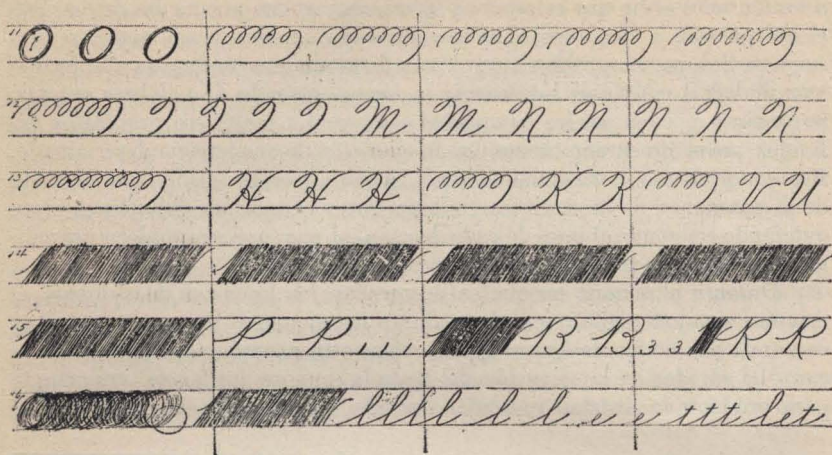 11 O O O
M M N N N N N
H H H K K N
14
15 P P , , , B B 3 3 R R
llll l l l e e ttt let